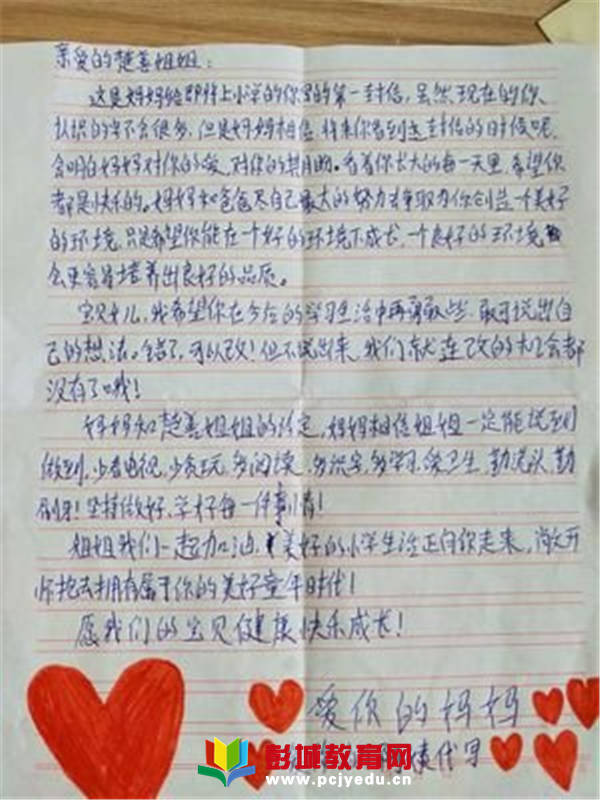 亲爱的楚善姐姐：
这是妈妈给即将上小学的你写的第一封信，虽然现在的你、
认识的字不会很多，但是妈妈相信将来你看到这封信的时候呢，
会明白妈妈对你的爱，对你的期盼。看着你长大的每一天里，希望你
都是快乐的。妈妈和爸爸尽自己最大的努力去争取为你创造一个美好
的环境，只是希望你能在一个好的环境下成长，一个良好的环境
会更容易培养出良好的品质。
宝贝女儿，我希望你在今后的学习生活中再勇敢些，敢于说出自
己的想法。错了，可以改！但不说出来，我们就连改的机会都
没有了哦！
妈妈和楚善姐姐的约定，妈妈相信姐姐一定能说到
做到，少看电视，少贪玩，多阅读，多识字，多学习，爱卫生，勤洗头，勤
刷牙！坚持做好、学好每一件事情！
姐姐我们一起加油，美好的小学生活正向你走来，敞开
怀抱去拥有属于你的美好童年时代！
愿我们的宝贝健康快乐成长！
爱你的妈妈
代写
彭城教育网
www.pcjyedu.cn